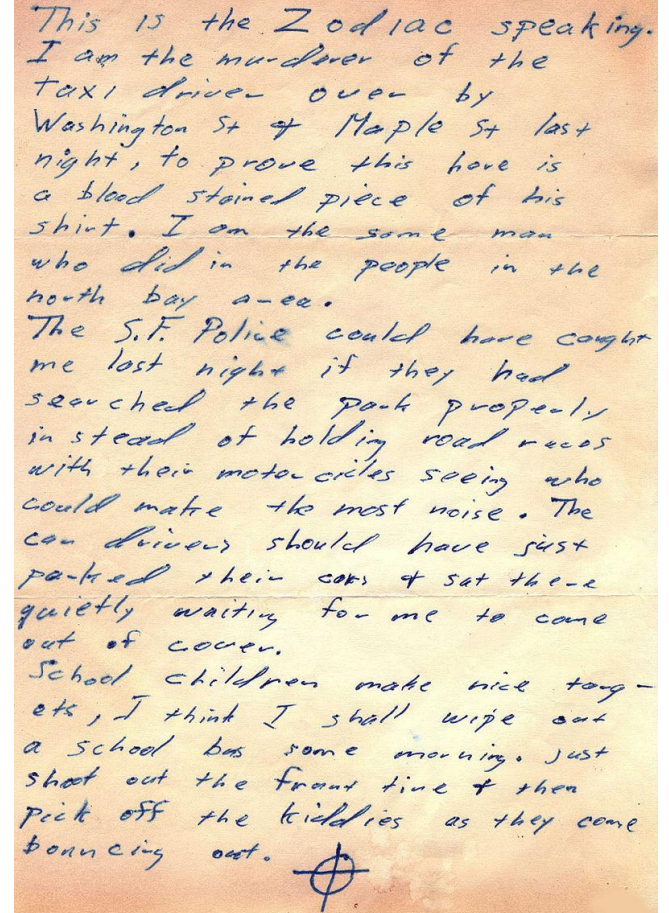 This is the Zodiac speaking.
I am the murderer of the
taxi driver over by
Washington St & Maple St last
night, to prove this here is
a blood stained piece of his
shirt. I am the same man
who did in the people in the
north bay area.
The S.F. Police could have caught
me last night if they had
searched the park properly
in stead of holding road races
with their motorcicles seeing who
could make the most noise. The
car drivers should have just
parked their cars & sat there
quietly waiting for me to come
out of cover.
School children make nice targ-
ets, I think I shall wipe out
a school bus some morning. Just
shoot out the front tire & then
pick off the kiddies as they come
bouncing out.